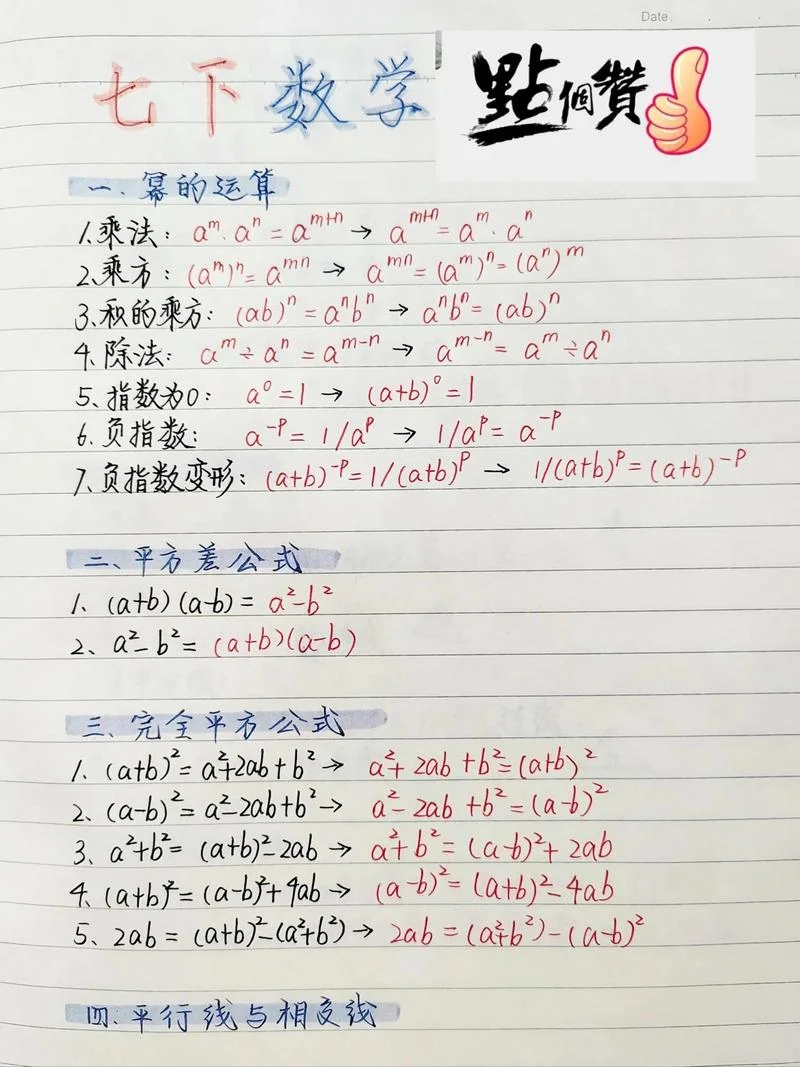 Date. . .
七下数学
點個贊
一.幂的运算
1.乘法: aᵐ·aⁿ=aᵐ⁺ⁿ→ aᵐ⁺ⁿ=aᵐ·aⁿ
2.乘方: (aᵐ)ⁿ=aᵐⁿ → aᵐⁿ=(aᵐ)ⁿ=(aⁿ)ᵐ
3.积的乘方: (ab)ⁿ=aⁿbⁿ → aⁿbⁿ=(ab)ⁿ
4.除法: aᵐ÷aⁿ=aᵐ⁻ⁿ→ aᵐ⁻ⁿ=aᵐ÷aⁿ
5、指数为0: a⁰=1 → (a+b)⁰=1
6、负指数: a⁻ᵖ=1/aᵖ → 1/aᵖ=a⁻ᵖ
7.负指数变形: (a+b)⁻ᵖ=1/(a+b)ᵖ → 1/(a+b)ᵖ=(a+b)⁻ᵖ
二、平方差公式
1、(a+b)(a-b)=a²-b²
2、a²-b²=(a+b)(a-b)
三、完全平方公式
1、(a+b)²=a²+2ab+b²→ a²+2ab+b²=(a+b)²
2、(a-b)²=a²-2ab+b²→ a²-2ab+b²=(a-b)²
3、a²+b²=(a+b)²-2ab→ a²+b²=(a-b)²+2ab
4、(a+b)²=(a-b)²+4ab→ (a-b)²=(a+b)²-4ab
5、2ab=(a+b)²-(a²+b²)→ 2ab=(a²+b²)-(a-b)²
四.平行线与相交线